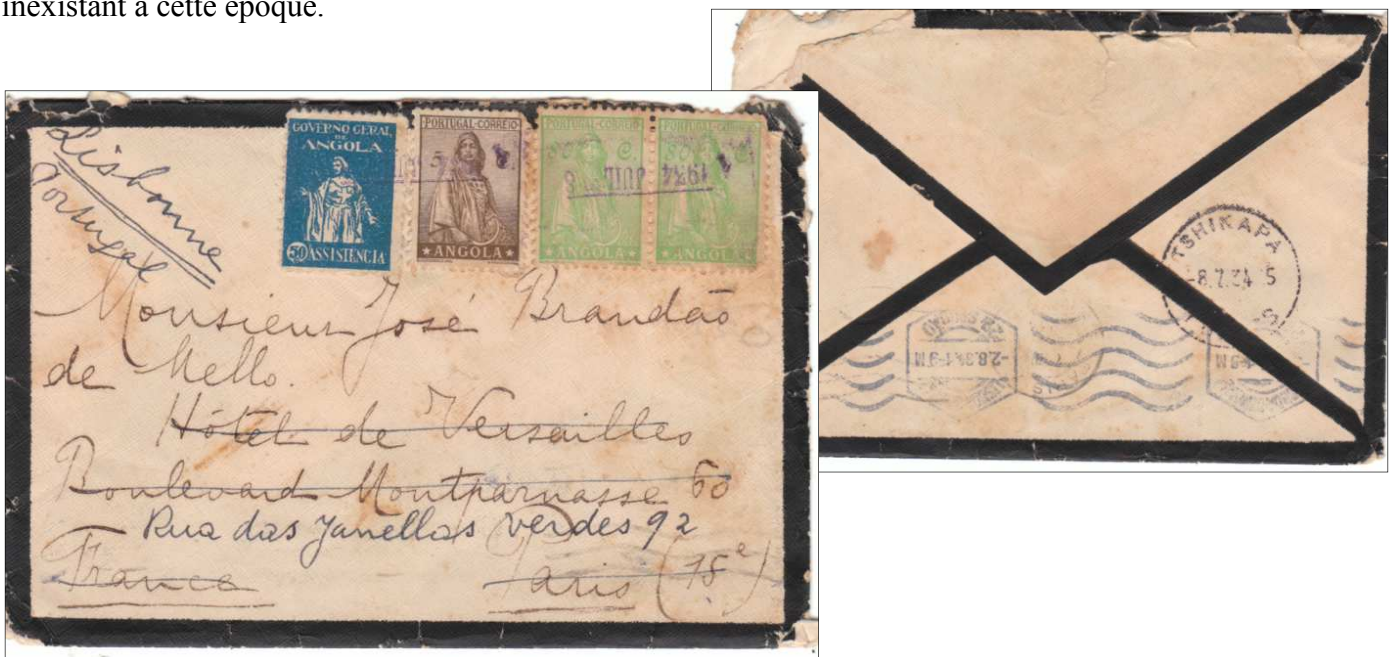 inexistant à cette époque.
Lisbonne
Portugal
GOVERNO GERAL
DE
ANGOLA
50 ASSISTENCIA
PORTUGAL-CORREIO
5
ANGOLA
PORTUGAL-CORREIO
80 C.
ANGOLA
PORTUGAL-CORREIO
80 C.
ANGOLA
8 JUIL 1934
Monsieur José Brandão
de Mello.
Hôtel de Versailles
Boulevard Montparnasse 60
Rua das Janellas verdes 92
France Paris (15e)
TSHIKAPA
-8.7.34
-2.8.34